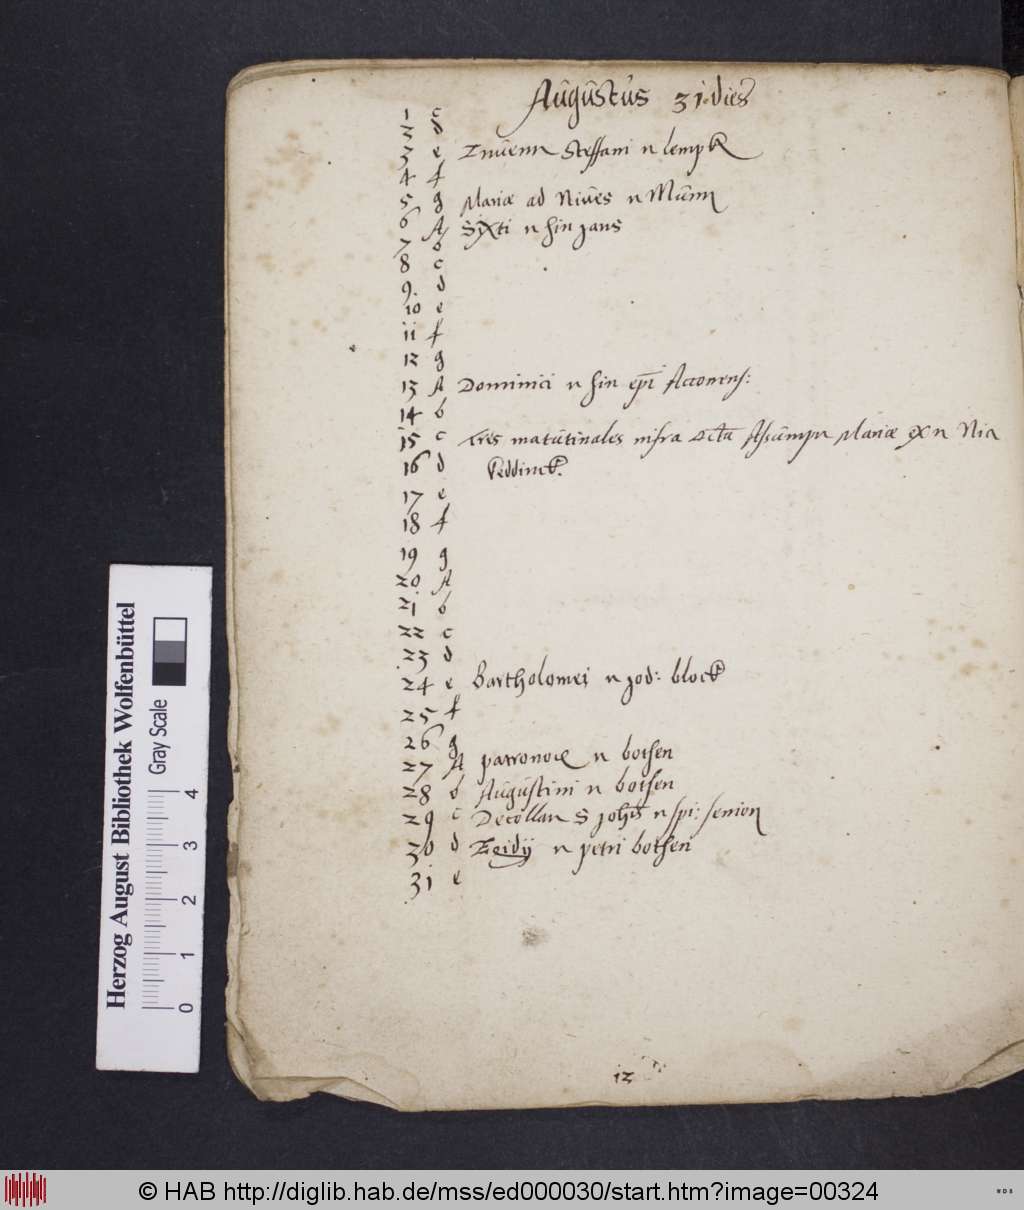 Augustus 31 dies
1 c
2 d
3 e Inuenn Steffani n lemp
4 f
5 g Mariæ ad Niues n Munn
6 A Sixti n hin jans
7 b
8 c
9. d
10 e
11 f
12 g
13 A Dominici n hin epi Acconens:
14 b
15 c Tres matutinales infra octa Assumpn Mariæ ex n Nic
16 d Keddinck.
17 e
18 f
19 g
20 A
21 b
22 c
23 d
24 e Bartholomei n jod: block
25 f
26 g
27 A patronor n botsen
28 b Augustini n botsen
29 c Decollan S johis n spi: senion
30 d Egidij n petri botsen
31 e
12
Herzog August Bibliothek Wolfenbüttel
Gray Scale
0 1 2 3 4
© HAB http://diglib.hab.de/mss/ed000030/start.htm?image=00324